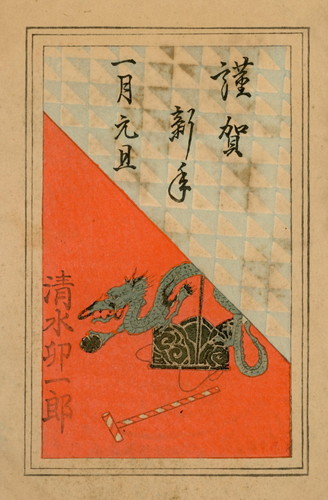 謹賀
新年
一月元旦
清水卯一郎